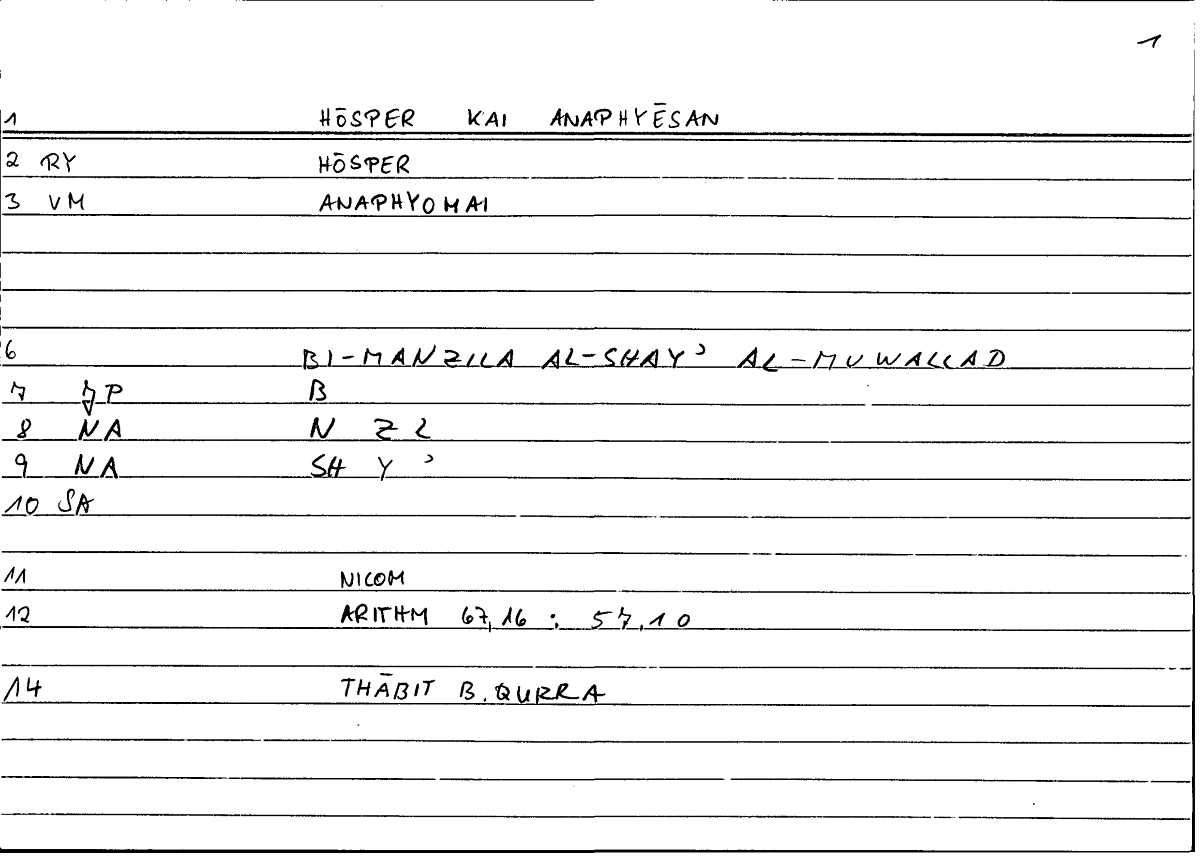 1
1 HŌSPER KAI ANAPHYĒSAN
2 RY HŌSPER
3 VM ANAPHYOMAI
6 BI-MANZILA AL-SHAYʾ AL-MUWALLAD
7 P B
8 NA N Z L
9 NA SH Y ʾ
10 SA
11 NICOM
12 ARITHM 67,16 : 57,10
14 THĀBIT B. QURRA